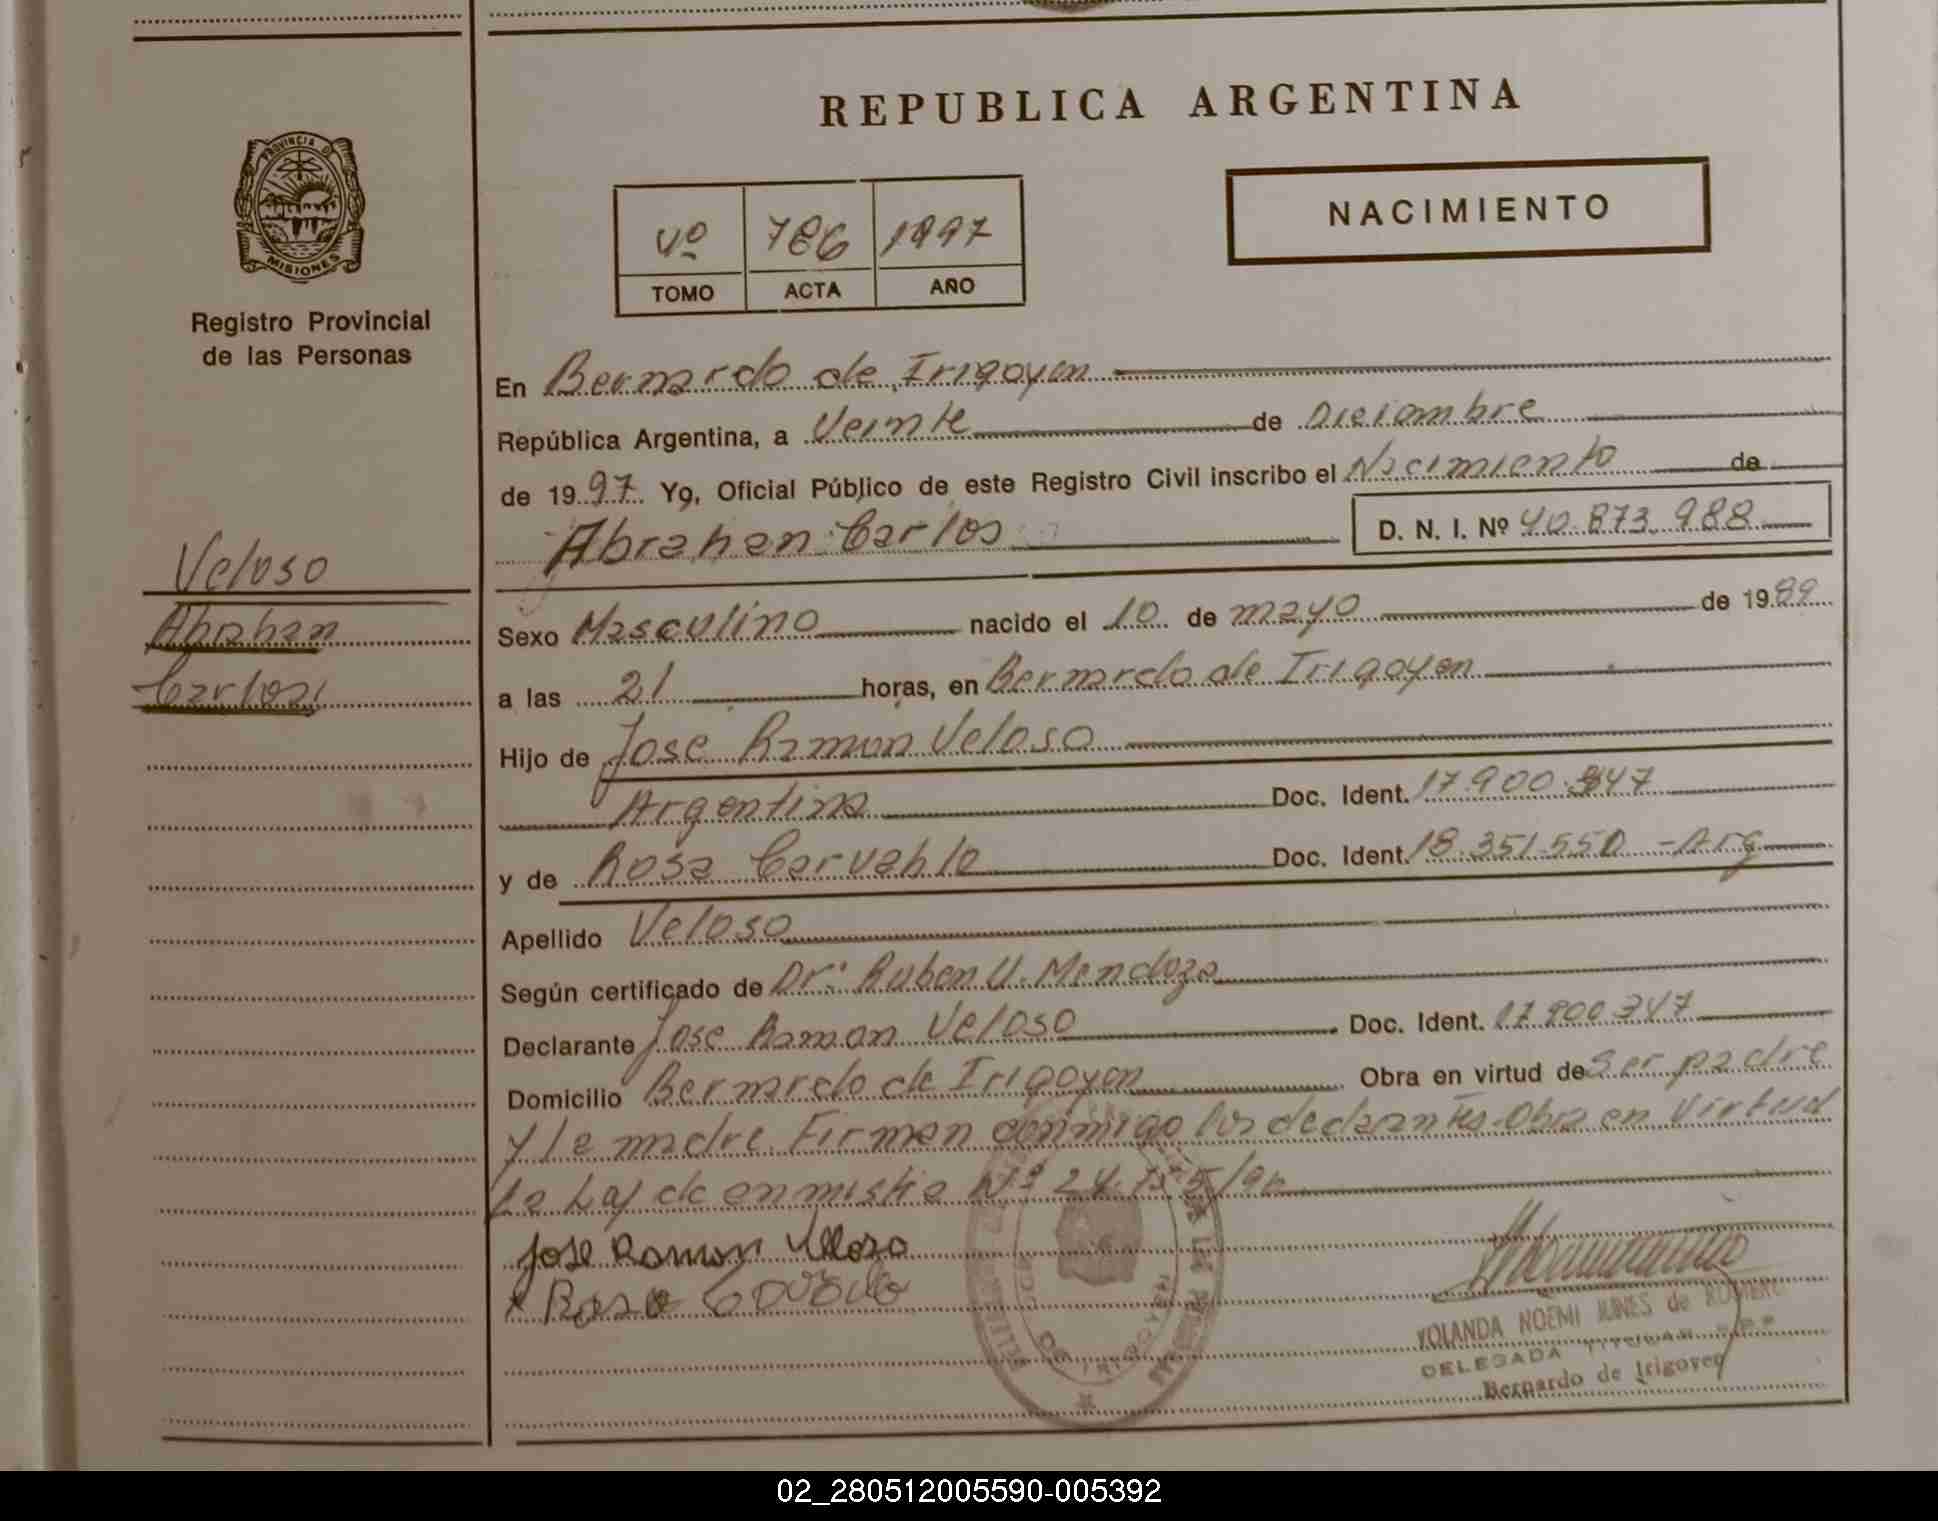 REPUBLICA ARGENTINA
PROVINCIA DE
MISIONES
Registro Provincial
de las Personas
4º 786 1997
TOMO ACTA AÑO
NACIMIENTO
En Bernardo de Irigoyen
República Argentina, a Veinte de Diciembre
de 1997 Yo, Oficial Público de este Registro Civil inscribo el Nacimiento de
Abrahan Carlos D. N. I. Nº 40.873.988
Veloso
Abrahan
Carlos
Sexo Masculino nacido el 10 de mayo de 1989
a las 21 horas, en Bernardo de Irigoyen
Hijo de Jose Ramon Veloso
Argentina Doc. Ident. 17.900.347
y de Rosa Carvahlo Doc. Ident. 18.351.550 - Arg
Apellido Veloso
Según certificado de Dr. Ruben U. Mendoza
Declarante Jose Ramon Veloso Doc. Ident. 17.900.347
Domicilio Bernardo de Irigoyen Obra en virtud de Ser padre
y la madre. Firman conmigo los declarantes. Obra en Virtud
La Ley de Nº 24.755/96
Jose Ramon Veloso
Rosa
YOLANDA NOEMI de
DELEGADA TITULAR
Bernardo de Irigoyen
02_280512005590-005392